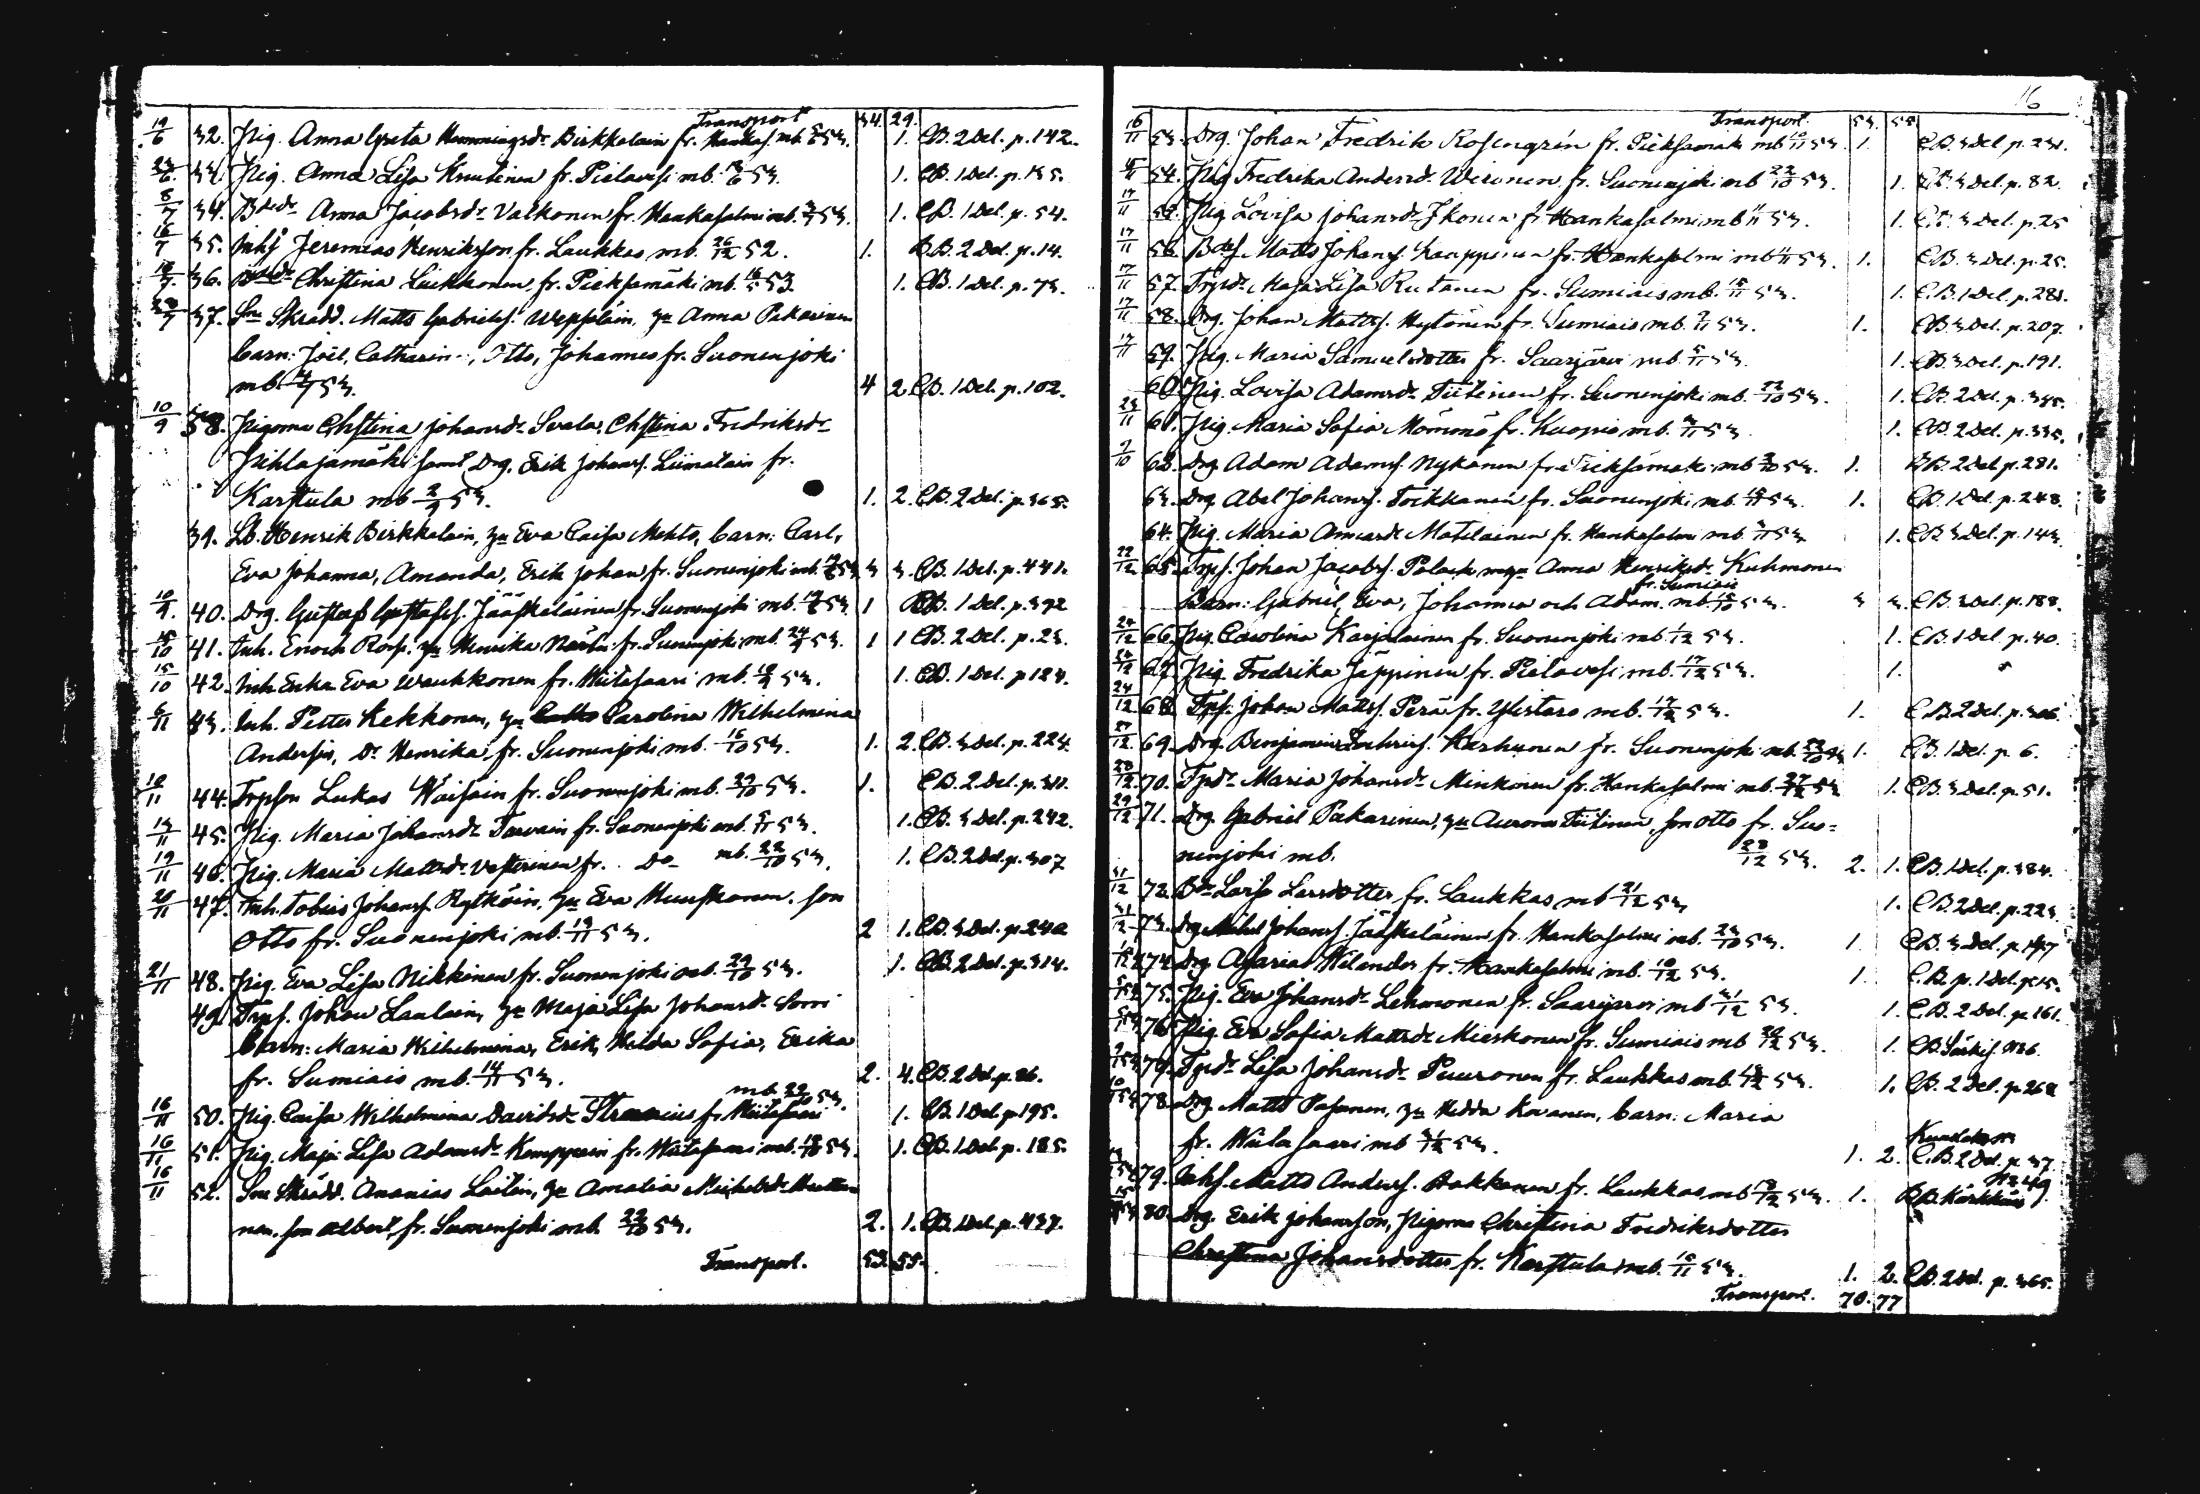 Transport 34. 29.
19/6 32. Pig. Anna Greta Hemmingsdr Birkkalain fr. Hankas. mb. 53. 1. CB. 2 Del. p. 142.
33. Pig. Anna Lisa Knutinen fr. Pielavesi mb. 53. 1. CB. 1 Del. p. 135.
8/7 34. Anna Jacobsdr Valkonen fr. Hankasalmi mb. 53. 1. CB. 1 Del. p. 54.
16/7 35. Inhs Jeremias Henriksson fr. Laukkas mb. 26/12 52. 1. BB. 2 Del. p. 14.
36. Christina Liukkonen fr. Pieksamäki mb. 53. 1. CB. 1 Del. p. 73.
37. Sn Skrädd. Matts Gabrielss. Wepsäläin, Hu Anna Pakarinen
barn: Joel, Catharin, Otto, Johannes fr. Suonenjoki
mb. 53. 4 2. CB. 1 Del. p. 102.
10/9 38. Pigorna Chstina Johansdr Svala, Chstina Fredriksdr
Pihlajamäki samt Drg. Erik Johans. Liimatain fr.
Karstula mb 2/9 53. 1. 2. CB. 2 Del. p. 365.
39. Lb. Henrik Birkkalain, Hu Eva Caisa Mehto, barn: Carl,
Eva Johanna, Amanda, Erik Johan fr. Suonenjoki mb. 53 3 3. CB. 1 Del. p. 441.
10/9. 40. Drg. Gustaf Gustafss. Jääskeläinen fr. Suonenjoki mb. 53. 1 CB. 1 Del. p. 392
15/10 41. Inh. Enoch Hu Henrika fr. Suonenjoki mb. 24/9 53. 1 1 CB. 2 Del. p. 23.
15/10 42. Inh. Enka Eva Waukkonen fr. Wiitasaari mb. 53. 1. CB. 1 Del. p 124.
6/11 43. Inh. Petter Kekkonen, Hu Carolina Wilhelmina
Andersin, Dr Henrika fr. Suonenjoki mb. 16/10 53. 1. 2. CB. 3 Del. p. 224.
10/11 44. Trpson Lukas Wäisäin fr. Suonenjoki mb. 29/10 53. 1. CB. 2 Del. p. 311.
14/11 45. Pig. Maria Johansdr Tarvain fr. Suonenjoki mb. 53. 1. CB. 3 Del. p. 242.
19/11 46. Pig. Maria Mattsdr Vesterinen fr. Do mb. 22/10 53. 1. CB. 2 Del. p. 307
20/11 47. Inh. Tobias Johans. Rytköin, Hu Eva Huuskonen. son
Otto fr. Suonenjoki mb. 19/11 53. 2 1. CB. 3 Del. p. 240
21/11 48. Pig. Eva Lisa Nikkinen fr. Suonenjoki mb. 29/10 53. 1. CB. 2 Del. p. 314.
49. Trps. Johan Laulain, Hu Maja Lisa Johansdr Sorri
barn: Maria Wilhelmina, Erik, Hilda Sofia, Erika
fr. Sumiais mb. 14/11 53. 2. 4. CB. 2 Del. p. 86.
16/11 50. Pig. Caisa Wilhelmina Davidsdr Stranius fr. Wiitasaari mb. 22/10 53. 1. CB. 1 Del. p 195.
16/11 51. Pig. Maja Lisa Adamsdr Kemppain fr. Wiitasaari mb. 53. 1. CB. 1 Del. p. 185.
16/11 52. Sn Skrädd. Ananias Laitin, Hu Amalia Michelsdr
nen, son Albert, fr. Suonenjoki mb. 22/10 53. 2. 1. CB. 1 Del. p. 437.
Transport. 53. 55.
16
Transport. 53. 55
16/11 53. Drg. Johan Fredrik Rosengrén fr. Pieksamäki mb 53. 1. CB. 3 Del. p. 231.
54. Pig Fredrika Andersdr Wironen fr. Suonenjoki mb 22/10 53. 1. CB. 3 Del. p. 82.
17/11 55. Pig Lovisa Johansdr Ikonen fr. Hankasalmi mb 53. 1. CB. 3 Del. p. 25
17/11 56. Matts Johans. Kauppinen fr. Hankasalmi mb 53. 1. CB. 3 Del. p. 25.
17/11 57. Trpdr Maja Lisa Rutanen fr. Sumiais mb. 53. 1. C.B. 1 Del. p. 281.
17/11 58. Drg. Johan Mattss. Hytönen fr. Sumiais mb. 53. 1. CB 3 Del. p. 207.
17/11 59. Pig. Maria Samuelsdotter fr. Saarjärvi mb. 5/11 53. 1. CB 3 Del. p. 191.
60. Pig. Lovisa Adamsdr Tiitinen fr. Suonenjoki mb. 22/10 53. 1. CB. 2 Del. p. 345.
61. Pig. Maria Sofia Mömmö fr. Kuopio mb. 53. 1. CB. 2 Del. p. 335.
62. Drg Adam Adams. Nykänen fr. Pieksämäki mb 53. 1. BB. 2 Del p. 281.
63. Drg Abel Johans. Toikkanen fr. Suonenjoki mb. 53. 1. CB. 1 Del. p. 248.
64. Pig. Maria Matilainen fr. Hankasalmi mb 53 1. CB 3 Del. p. 143.
22/12 65. Trps. Johan Jacobs. Polack Hu Anna Henriksdr Kuhmonen
fr. Sumiais
Barn: Gabriel, Eva, Johanna och Adam. mb 53. 3 3. CB. 3 Del. p. 188.
24/12 66. Pig. Carolina Karjalainen fr. Suonenjoki mb. 53. 1. CB 1 Del. p. 40.
67. Pig. Fredrika Jäppinen fr. Pielavesi mb. 17/12 53. 1.
24/12 68. Trps. Johan Mattss. Perä fr. Ylistaro mb. 17/12 53. 1. CB 2 Del. p. 306.
27/12 69. Drg. Benjamin Karhunen fr. Suonenjoki mb. 53 1. CB. 1 Del. p. 6.
28/12 70. Trpdr Maria Johansdr Minkinen fr. Hankasalmi mb. 53 1. CB 3 Del. p. 51.
29/12 71. Drg Gabriel Pakarinen, Hu Aurora Tiitinen, son Otto fr. Suo=
nenjoki mb. 28/12 53. 2. 1. CB. 1 Del. p. 384.
31/12 72. Lovisa Larsdotter fr. Laukkas mb 21/12 53 1. CB. 2 Del. p. 223.
31/12 73. Drg Johans. Jääskeläinen fr. Hankasalmi mb. 53. 1. CB. 3 Del. p. 147
74. Drg Asarias Wilander fr. Hankasalmi mb. 10/12 53. 1. C.B. p. 1 Del. p. 15.
75. Pig. Eva Johansdr Lehmonen fr. Saarijärvi mb 31/12 53. 1. C.B. 2 Del. p. 161.
76. Pig. Eva Sofia Mattsdr Mieskonen fr. Sumiais mb 53. 1. CB
77. Trpdr Lisa Johansdr Puuronen fr. Laukkas mb. 53. 1. CB. 2 Del. p. 268
78. Drg Matts Pasanen, Hu Hedda Kovanen, barn: Maria
fr. Wiitasaari mb 31/12 53. 1. 2. C.B. 2 Del. p. 37.
79. Inhs. Matts Anders. Hakkonen fr. Laukkas mb 53. 1. BB
80. Drg. Erik Johansson, Pigorna Christina Fredriksdotter
Christina Johansdotter fr. Karstula mb. 53. 1. 2. CB. 2 Del. p. 365.
Transport. 70. 77